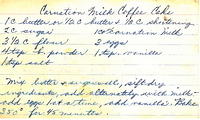 Carnation Milk Coffee Cake
1 C butter or 1/2 C butter & 1/2 C shortening
2 C sugar 1 C Carnation Milk
3 1/2 C flour 3 eggs
4 tsp b. powder 1 tsp. vanilla
1 tsp salt
Mix butter & sugar well, sift dry
ingredients, add alternately with milk -
add eggs 1 at a time, add vanilla. Bake
350° for 45 minutes.